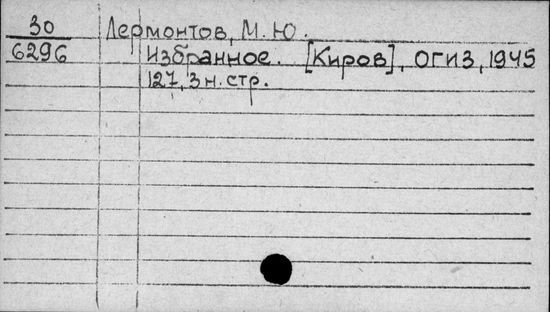 30 Лермонтов, М. Ю.
6296 Избранное. [Киров], ОГИЗ, 1945
127, 3 н. стр.